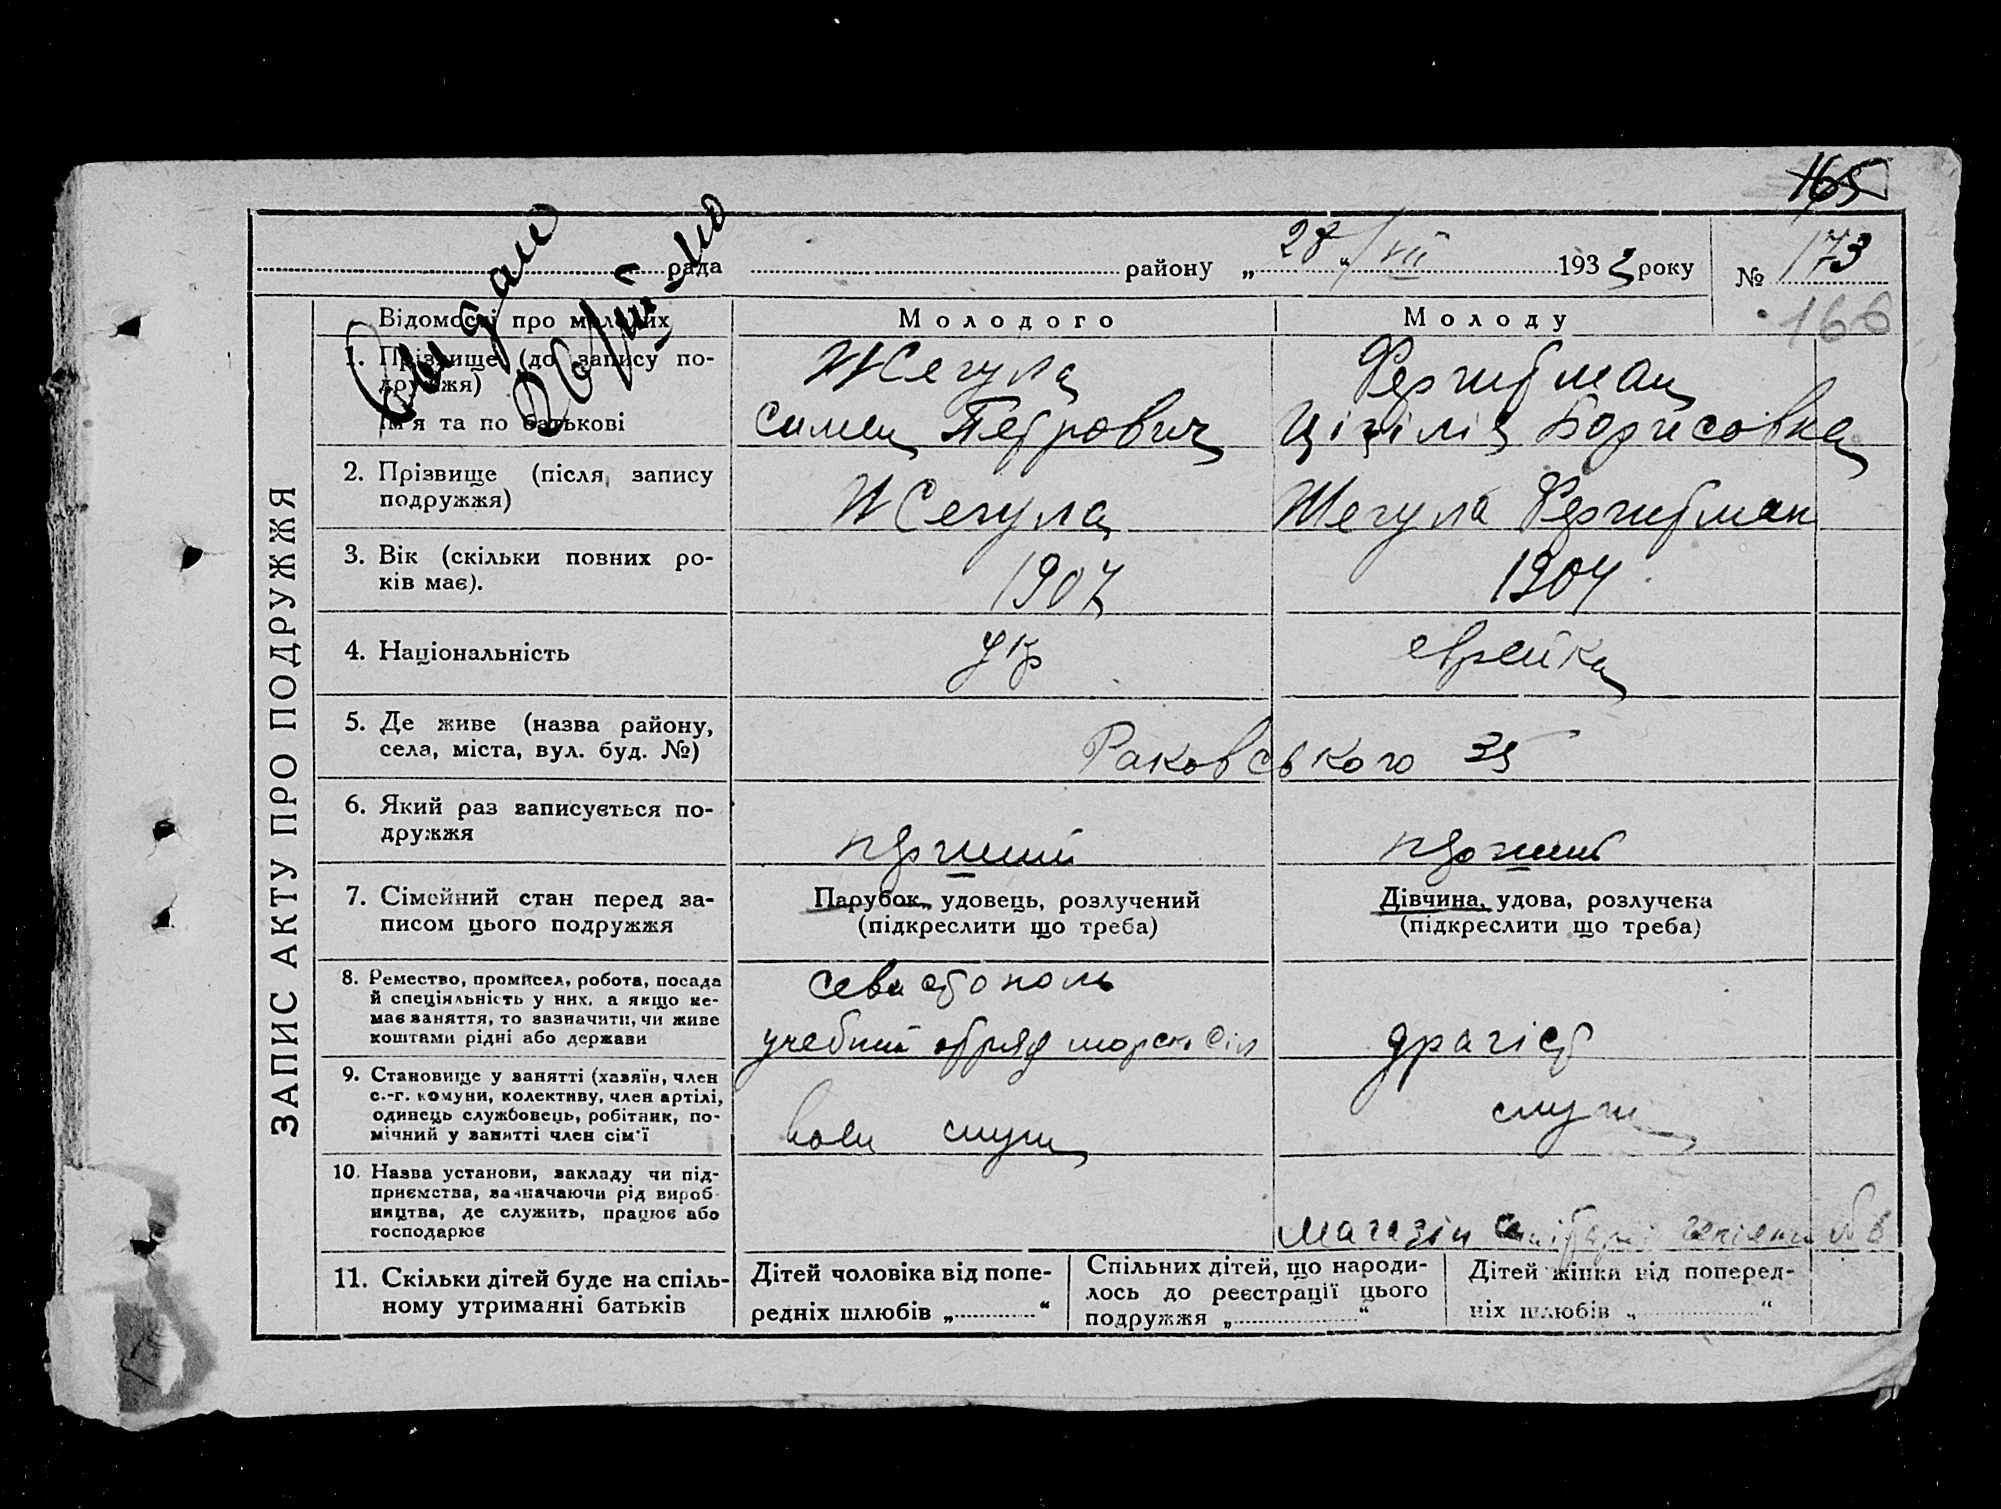 165
рада району „28“/VII 1933 року № 173
166
ЗАПИС АКТУ ПРО ПОДРУЖЖЯ
Відомості про молодих
Молодого
Молоду
1. Прізвище (до запису по-
дружжя)
Ім'я та по батькові
Жегула
Симен Петрович
Цицілія Борисовна
2. Прізвище (після запису
подружжя)
Жегула
Жегула
3. Вік (скільки повних ро-
ків має).
1907
1904
4. Національність
укр
еврейка
5. Де живе (назва району,
села, міста, вул. буд. №)
Раковського 35
6. Який раз записується по-
дружжя
перший
перший
7. Сімейний стан перед за-
писом цього подружжя
Парубок, удовець, розлучений
(підкреслити що треба)
Дівчина, удова, розлучена
(підкреслити що треба)
8. Ремество, промисел, робота, посада
й спеціяльність у них, а якщо не-
має заняття, то зазначити, чи живе
коштами рідні або держави
Севастополь
учебний отряд морск сил
9. Становище у занятті (хазяїн, член
с.-г. комуни, колективу, член артілі,
одинець службовець, робітник, по-
мічний у занятті член сім'ї
служ
служ
10. Назва установи, закладу чи під-
приємства, зазначаючи рід вироб-
ництва, де служить, працює або
господарює
магазін
11. Скільки дітей буде на спіль-
ному утриманні батьків
Дітей чоловіка від попе-
редніх шлюбів „ “
Спільних дітей, що народи-
лось до реєстрації цього
подружжя „ “
Дітей жінки від поперед-
ніх шлюбів „ “